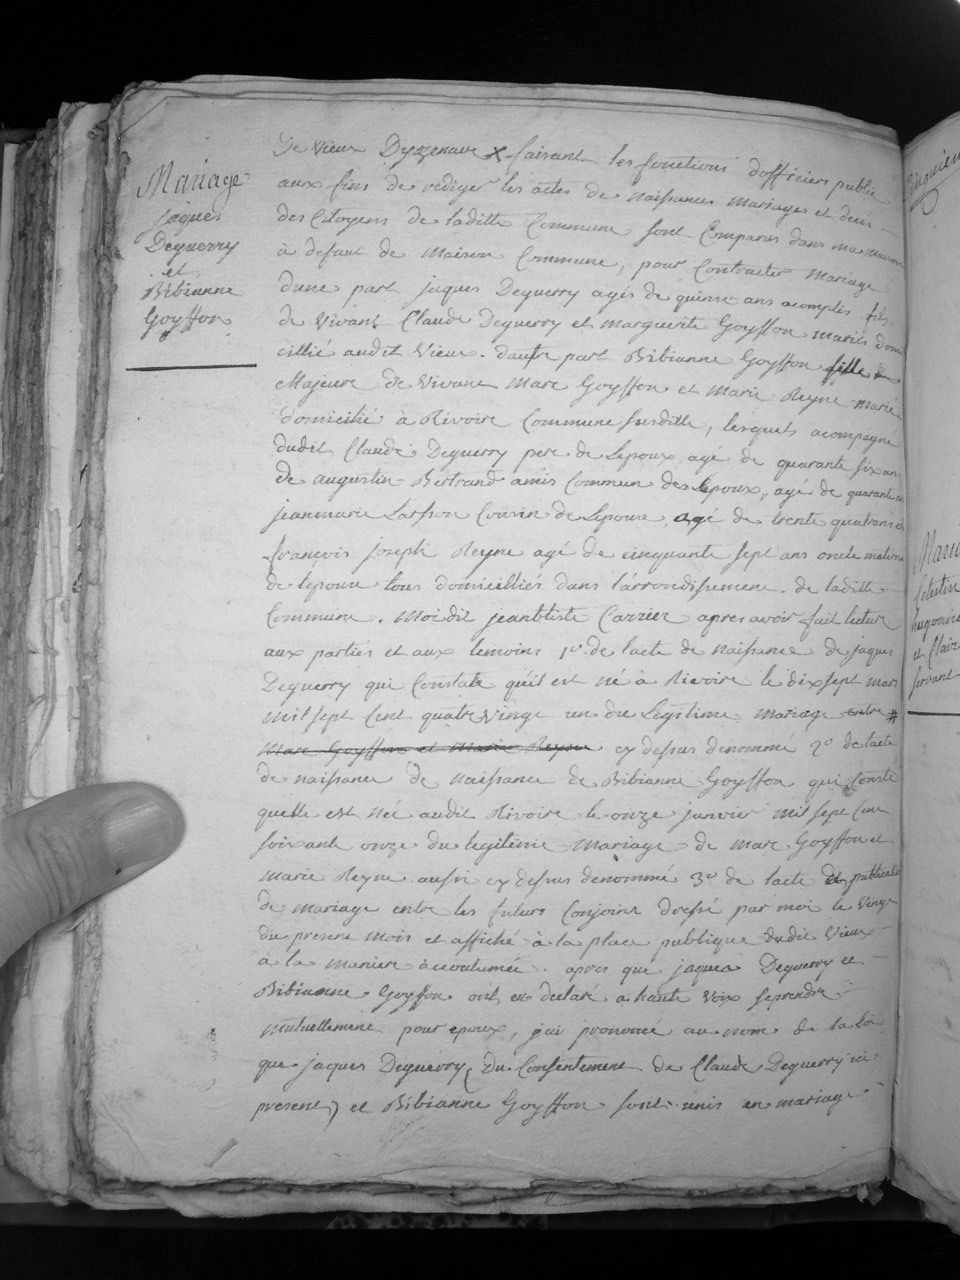 Mariage
jaques
Deguerry
et
Bibianne
Goyffon
De Vieux Dyzenave x faisant les fonctions dofficiers public
aux fins de rediger les actes de Naissances Mariages et deces
des Citoyens de laditte Commune sont Comparus dans ma maison
à defaut de Maison Commune, pour Contracter Mariage
dune part jaques Deguerry agés de quinse ans acomplis fils
de Vivant Claude Deguerry et marguerite Goyffon mariés domi
cillié audit Vieux. dautre part Bibianne Goyffon fille
Majeure de Vivant Marc Goyffon et Marie Reyne mariés
domicilié à Rivoire Commune susditte, lesquels acompagné
dudit Claude Deguerry pere de Lepoux agé de quarante six ans
de augustin Bertrand amis Commun des Lepoux, agé de quarante ans
jeanmarie Larsson Cousin de Lepouse agé de trente quatrans et
françois joseph Reyne agé de cinquante sept ans oncle materne
de lepouse tous domicilliés dans l'arrondissement de laditte
Commune. Moidit jeanbtiste Carrier apres avoir fait lecture
aux parties et aux temoins 1º de lacte de Naissance de jaques
Deguerry qui Constate quil est né à Rivoire le dixsept mars
Mil sept Cent quatre Vingt un du Legitime Mariage entre #
Marc Goyffon et Marie Reyne cy dessus denommé 2º de lacte
de naissance de Naissance de Bibianne Goyffon qui Conste
quelle est Née audit Rivoire le onze janvier Mil sept Cent
soixante onze du legitime Mariage de Marc Goyffon et
Marie Reyne aussi cy dessus denommé 3º de lacte de publication
de Mariage entre les futurs Conjoins dressé par moi le Vingt
du present Mois et affiché à la place publique dudit Vieux
à la maniere accoutumée. apres que jaques Deguerry et
Bibianne Goyffon ont en declaré a haute Voix seprendre
Mutuellement pour epoux, jai prononcé au nom de la Loi
que jaques Deguerry (du Consentement de Claude Deguerry ici
present) et Bibianne Goyffon sont unis en mariage
Mari
Celestin
hugonin
et Claire
servant